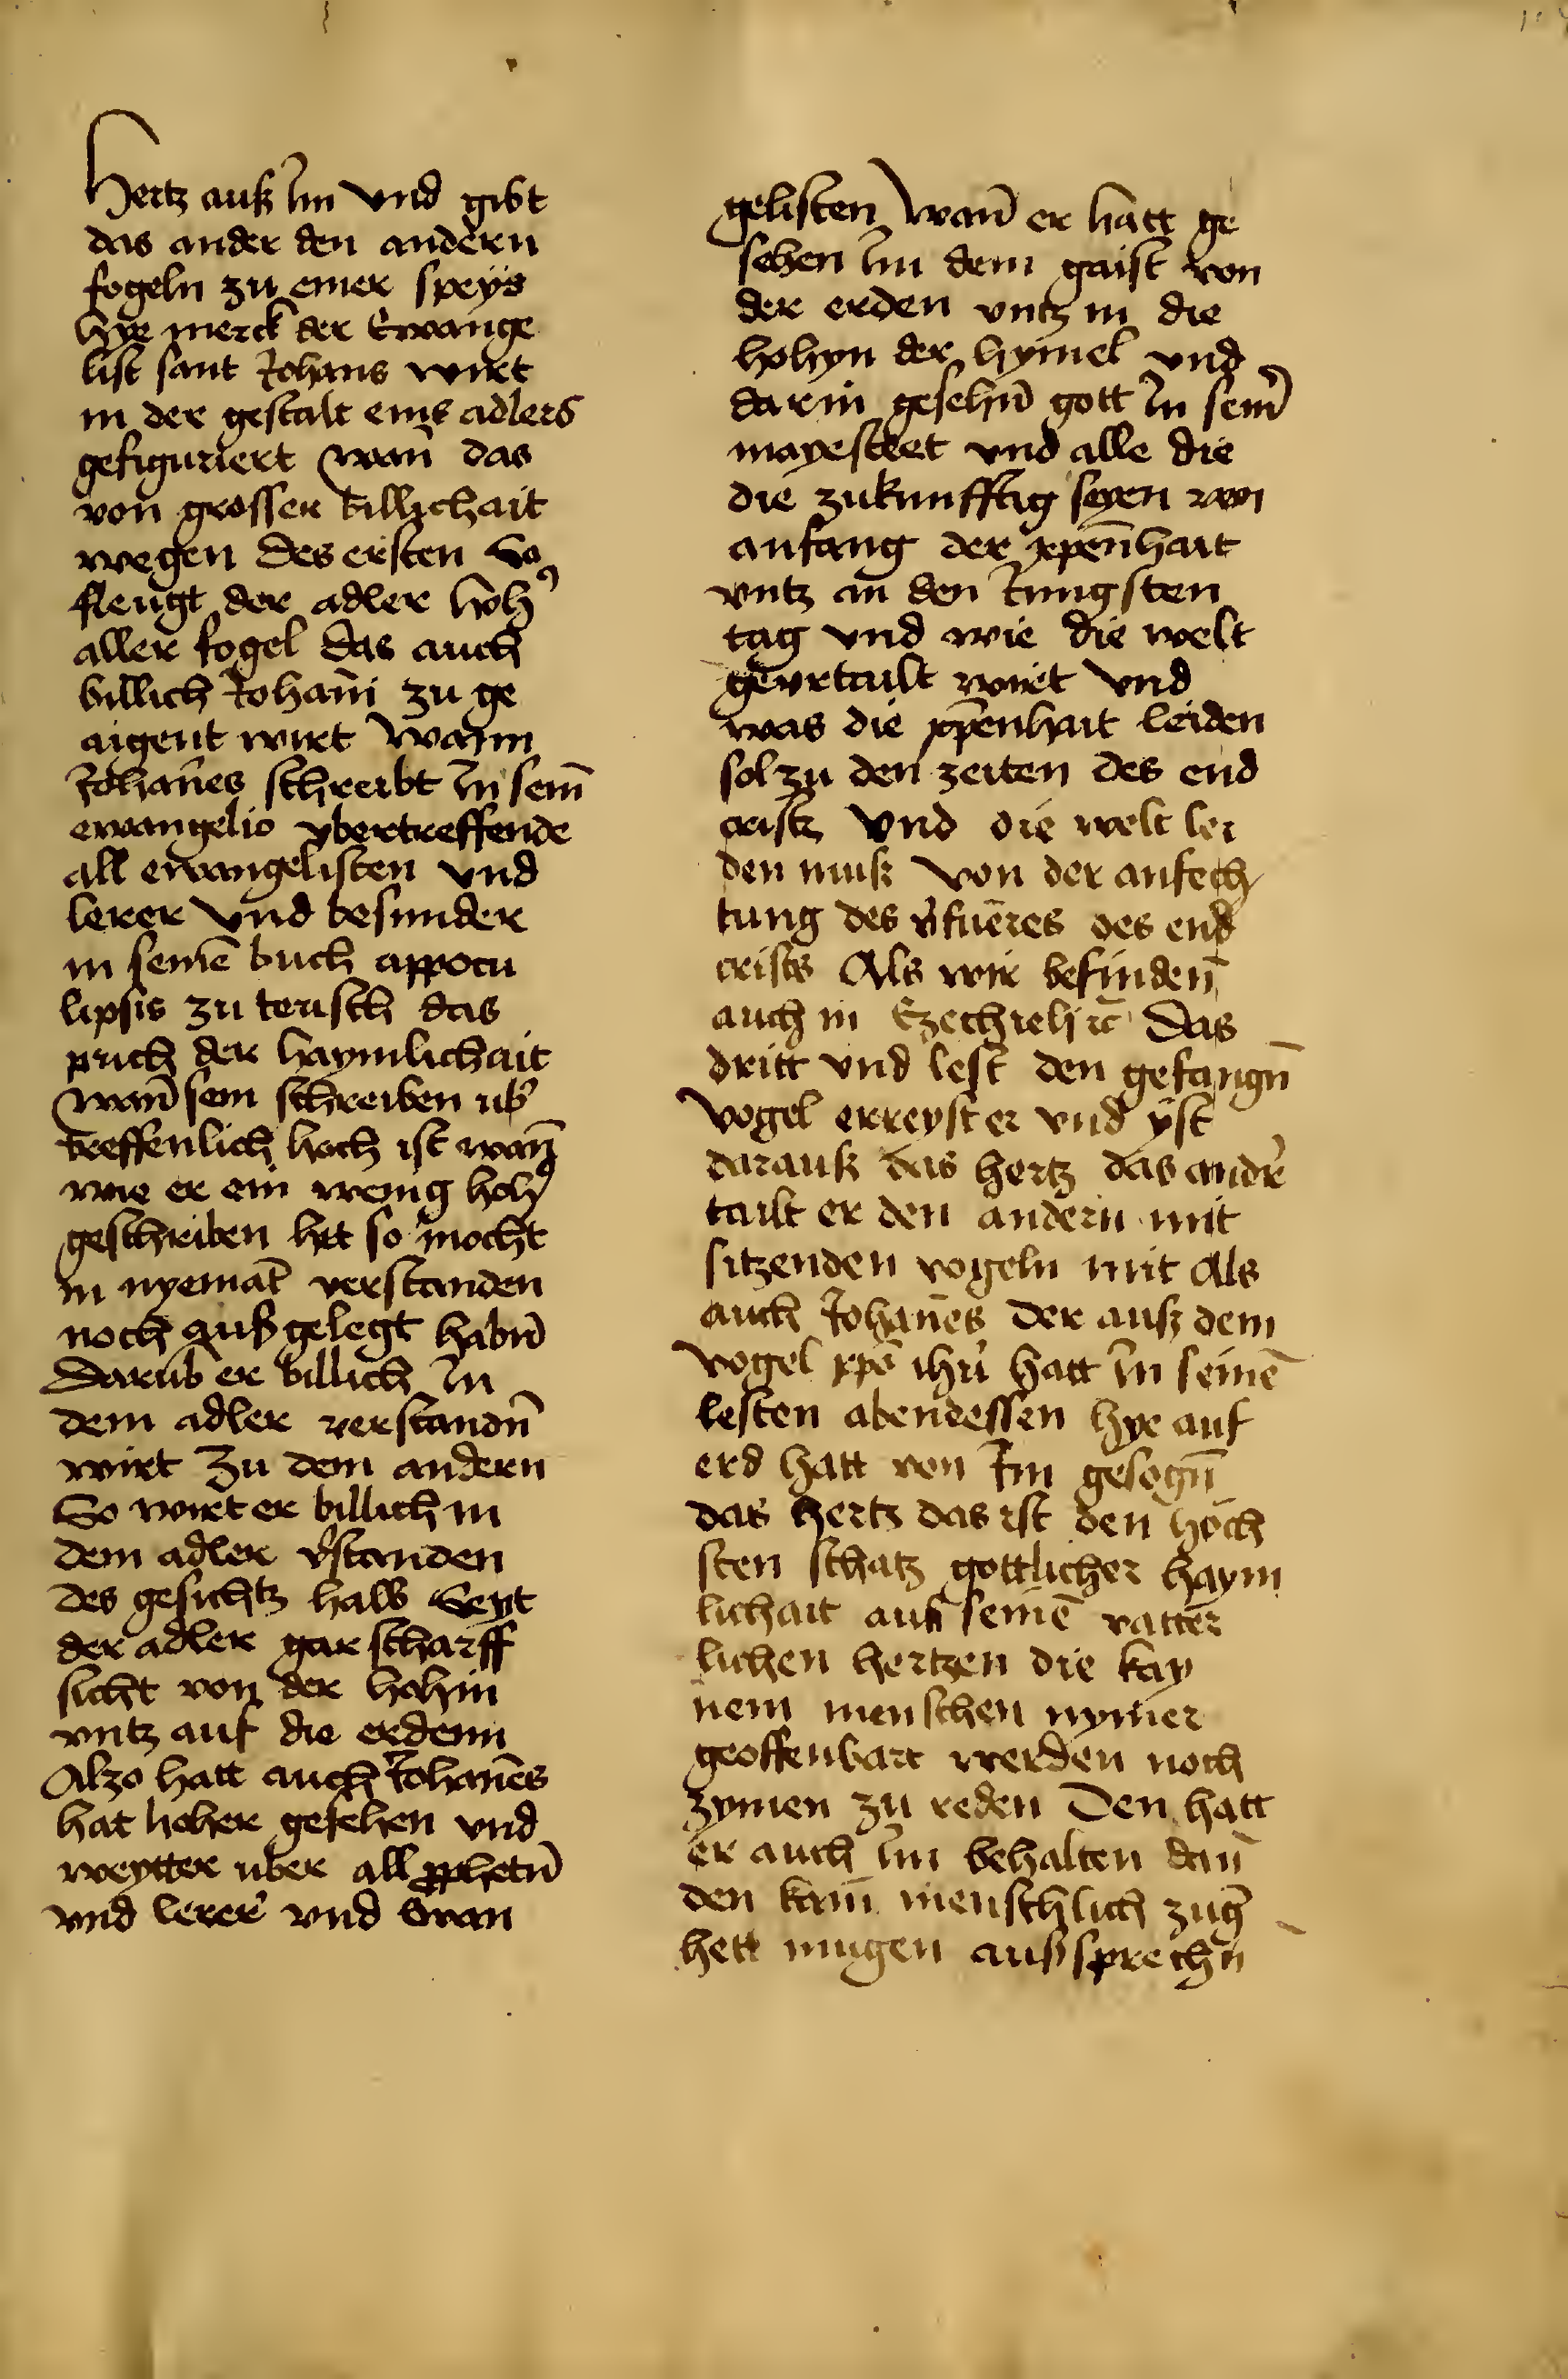 Hertz auß Im Vnd gibt
das ander den andern
fogeln zu einer speyß
hye merck der Ewange
list sant Johans wirt
in der gestalt eins adlers
gefiguriert wan̄ das
von grosser billichait
wegen des ersten So
fleugt der adler hoh̛
aller fogel das auch
billich Johan̄i zu ge
aigent wirt Wann
Johan̄es schreibt In sein̄
ewangelio ybertreffende
all ewangelisten vnd
lerer Vnd besunder
in seinē buch appocu
lipsis zu teusch das
puch der haymlichait
wan̄ sein schreiben ub̛
treffenlich hoch ist wan̄
wie er ein wenig hoh̛
geschriben hett so mocht
in nyemāt verstanden
noch außgelegt habn̄
Darūb er billich In
dem adler verstandn̄
wirt Zu dem andern
So wirt er billich in
dem adler v̛standen
des gesichtz halb Seyt
der adler gar scharff
sicht von der hohin
vntz auf die erdenn
Alzo hatt auch Johan̄es
hat hoher gesehen vnd
weytter uber all pphetn̄
vnd lerer vnd Ewan
gelisten Wan̄ er hatt ge
sehen Im dem gaist von
der erden vntz in die
hohyn der hymel vnd
darin gesehn̄ gott In sein̄
mayesteet vnd alle die
die zukunfftig seyen von
anfang der xpēnhait
vntz an den Jungsten
tag vnd wie die welt
geurtailt wirt Vnd
was die xp̄enhait leiden
sol zu den zeiten des end
crists Vnd die welt lei
den muß von der anfech
tung des v̛fueres des end
crists Als wir befinden
auch in Ezechieli rc̄ Das
dritt vnd lest den gefangn̄
vogel erreyst er vnd yst
darauß das hertz das andr̄
tailt er den andern mit
sitzenden vogeln mit Als
auch Johan̄es Der auß dem
vogel xpō ihū hatt In seinē
lesten abendessen hye auf
erd hatt von Im gesogn̄
das hertz das ist den hoch
sten schatz gottlicher haym
lichait auß seinē vatter
lichen hertzen die kay
nem menschen nymer
geoffenbart werden noch
zymen zu reden Den hatt
er auch Im behalten dan̄
den kain̄ menschlich zuḡ
hett mugen außsprechn̄